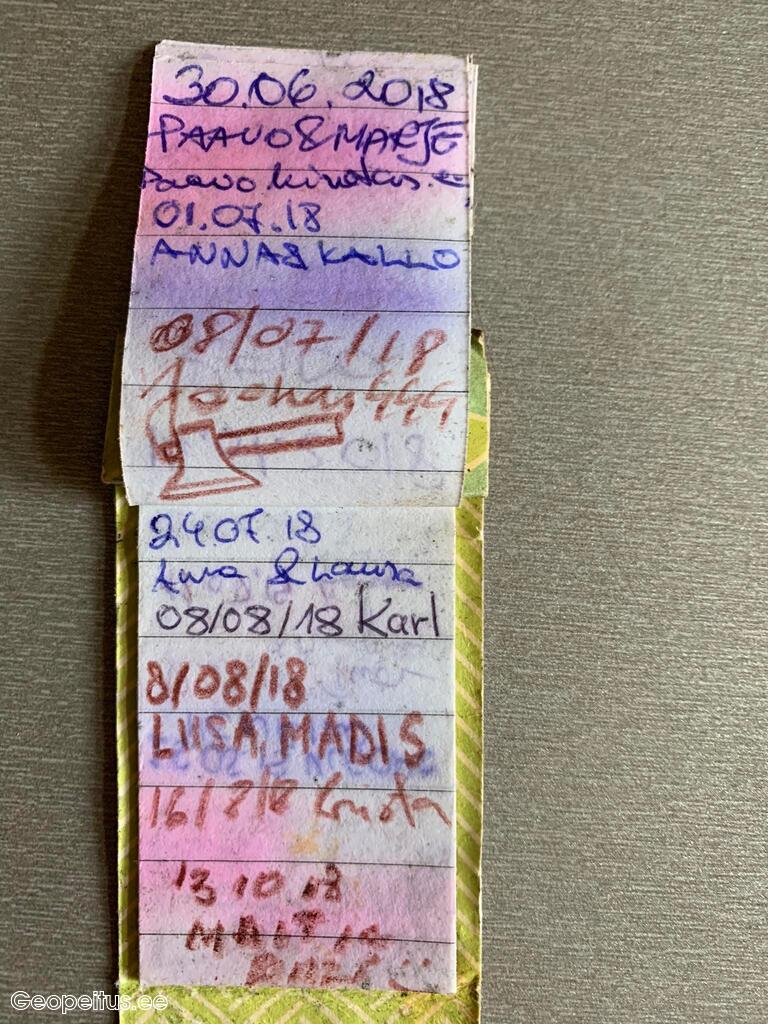 30.06.2018
PAAVO&MARJE
01.07.18
ANNA&KALLO
08/07/18
24.07.18
& Laura
08/08/18 Karl
8/08/18
LIISA, MADIS
16/8/18
13.10.18
MAIT ja
Geopeitus.ee